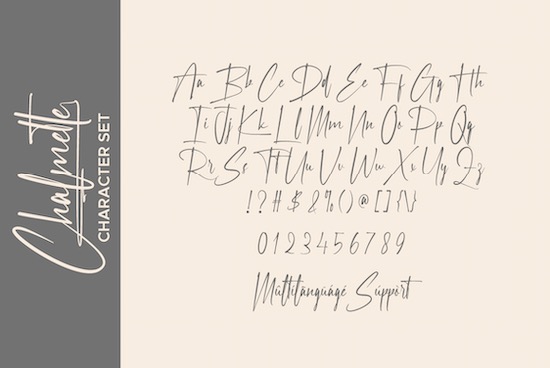 Chalmette
CHARACTER SET
Aa Bb Cc Dd Ee Ff Gg Hh
Ii Jj Kk Ll Mm Nn Oo Pp Qq
Rr Ss Tt Uu Vv Ww Xx Yy Zz
!?#$&%()@[]{}
0123456789
Mültilängüágé Süppört